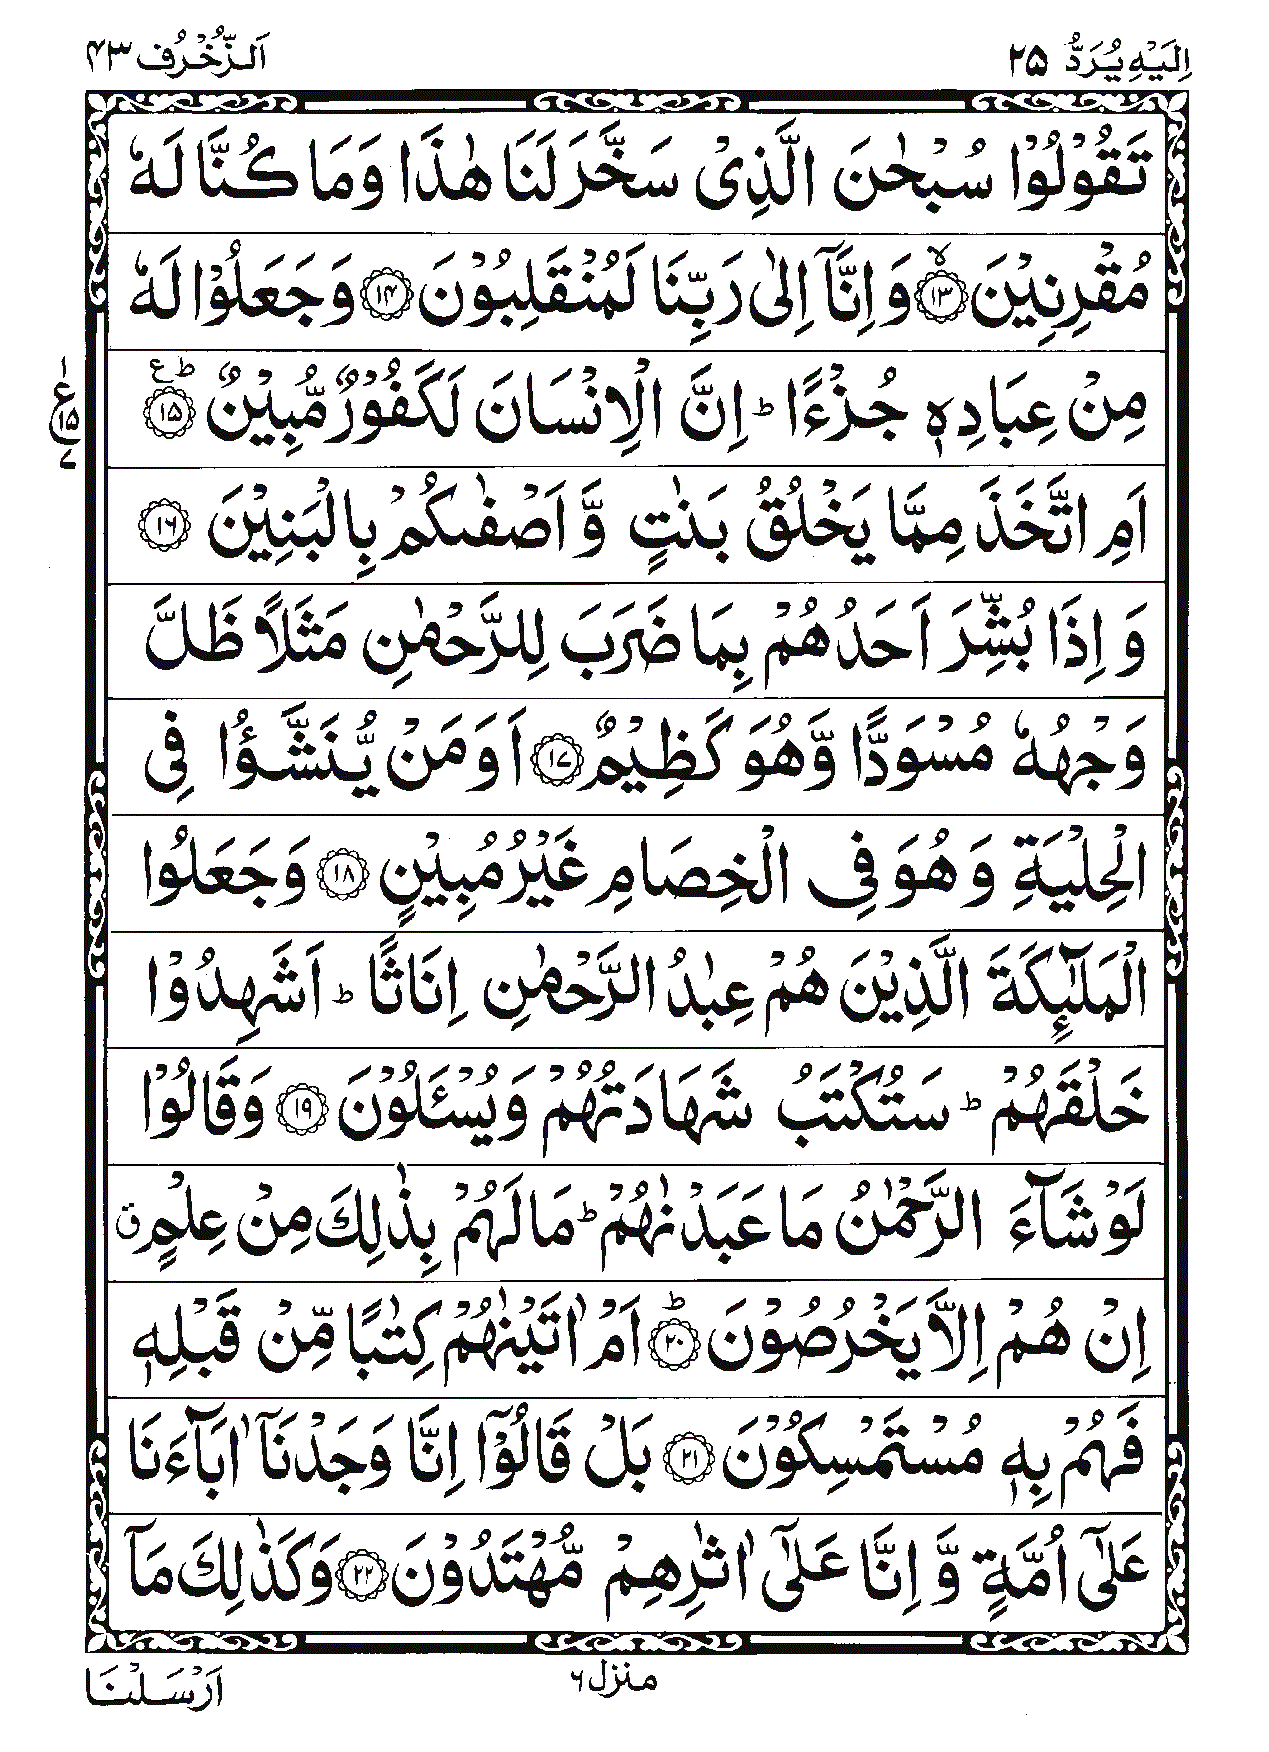 اِلَیْهِ یُرَدُّ ۲۵
اَلزُّخْرُف ۴۳
تَقُوْلُوْا سُبْحٰنَ الَّذِیْ سَخَّرَ لَنَا هٰذَا وَمَا كُنَّا لَهٗ
مُقْرِنِیْنَ ۙ﴿۱۳﴾ وَ اِنَّاۤ اِلٰی رَبِّنَا لَمُنْقَلِبُوْنَ ﴿۱۴﴾ وَ جَعَلُوْا لَهٗ
مِنْ عِبَادِهٖ جُزْءًا ؕ اِنَّ الْاِنْسَانَ لَكَفُوْرٌ مُّبِیْنٌ ﴿۱۵﴾ؕ ع
۱
ع ۱۵
۷
اَمِ اتَّخَذَ مِمَّا یَخْلُقُ بَنٰتٍ وَّ اَصْفٰىكُمْ بِالْبَنِیْنَ ﴿۱۶﴾
وَ اِذَا بُشِّرَ اَحَدُهُمْ بِمَا ضَرَبَ لِلرَّحْمٰنِ مَثَلًا ظَلَّ
وَجْهُهٗ مُسْوَدًّا وَّهُوَ كَظِیْمٌ ﴿۱۷﴾ اَوَ مَنْ یُّنَشَّؤُا فِی
الْحِلْیَةِ وَ هُوَ فِی الْخِصَامِ غَیْرُ مُبِیْنٍ ﴿۱۸﴾ وَ جَعَلُوا
الْمَلٰٓىِٕكَةَ الَّذِیْنَ هُمْ عِبٰدُ الرَّحْمٰنِ اِنَاثًا ؕ اَشَهِدُوْا
خَلْقَهُمْ ؕ سَتُكْتَبُ شَهَادَتُهُمْ وَیُسْـَٔلُوْنَ ﴿۱۹﴾ وَقَالُوْا
لَوْ شَآءَ الرَّحْمٰنُ مَا عَبَدْنٰهُمْ ؕ مَا لَهُمْ بِذٰلِكَ مِنْ عِلْمٍ ۗ
اِنْ هُمْ اِلَّا یَخْرُصُوْنَ ﴿۲۰﴾ؕ اَمْ اٰتَیْنٰهُمْ كِتٰبًا مِّنْ قَبْلِهٖ
فَهُمْ بِهٖ مُسْتَمْسِكُوْنَ ﴿۲۱﴾ بَلْ قَالُوْۤا اِنَّا وَجَدْنَاۤ اٰبَآءَنَا
عَلٰۤی اُمَّةٍ وَّ اِنَّا عَلٰۤی اٰثٰرِهِمْ مُّهْتَدُوْنَ ﴿۲۲﴾ وَكَذٰلِكَ مَاۤ
منزل ۶
اَرْسَلْنَا